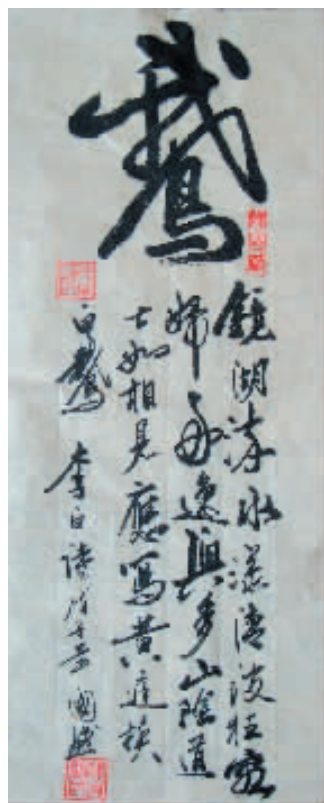 鵝
鏡湖流水漾清波狂客
歸舟逸興多山陰道
士如相見應寫黄庭換
白鵝 李白詩